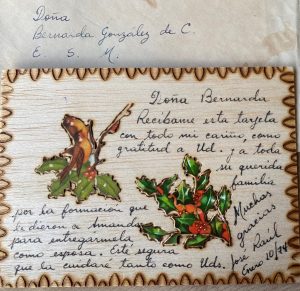 Doña
Bernarda González de C.
E. S. M.
Doña Bernarda
Recíbame esta tarjeta
con todo mi cariño, como
gratitud a Ud. y a toda
su querida
familia
por la formación que
le dieron a Amanda
para entregármela
como esposa. Esté segura
que la cuidaré tanto como Uds.
Muchas
gracias
José Raúl
Enero 20/74